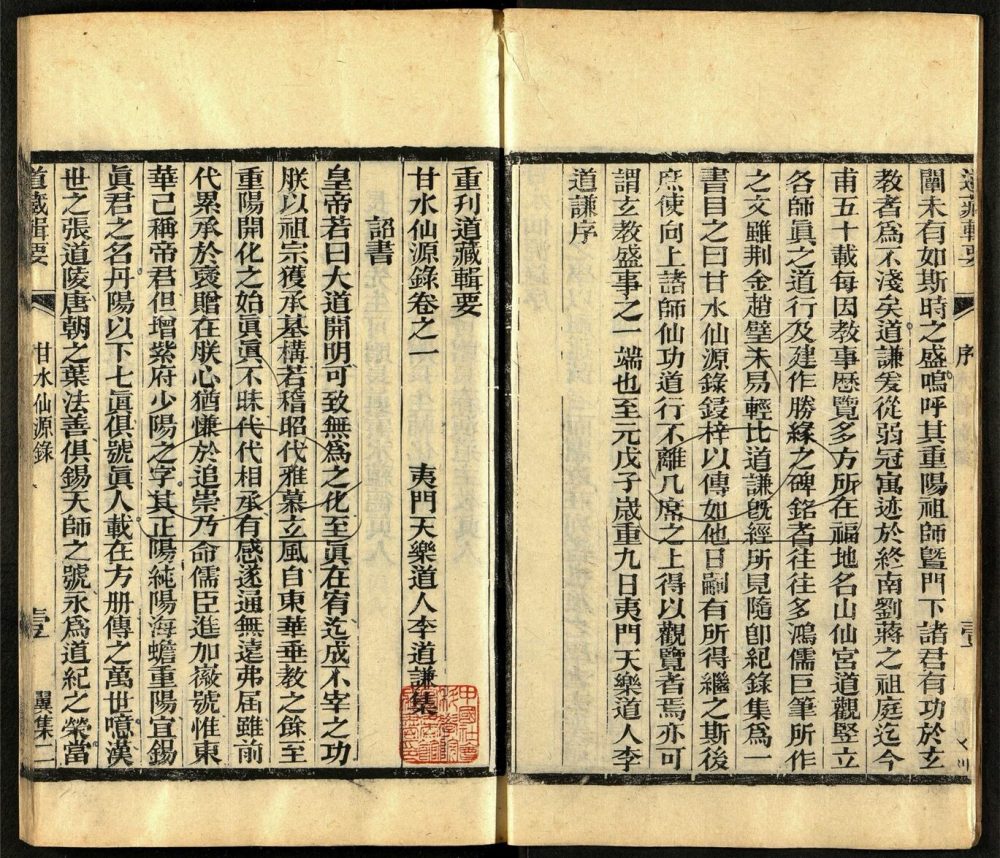 道藏輯要 序 壹
闡未有如斯時之盛嗚呼其重陽祖師曁門下諸君有功於玄
教者爲不淺矣道謙爰從弱冠寓迹於終南劉蔣之祖庭迄今
甫五十載每因教事歷覽多方所在福地名山仙宮道觀竪立
各師眞之道行及建作勝緣之碑銘者往往多鴻儒巨筆所作
之文雖荆金趙璧未易輕比道謙旣經所見隨卽紀錄集爲一
書目之曰甘水仙源錄鋟梓以傳如他日嗣有所得繼之斯後
庶使向上諸師仙功道行不離几席之上得以觀覽者焉亦可
謂玄教盛事之一端也至元戊子歲重九日夷門天樂道人李
道謙序
重刊道藏輯要
甘水仙源錄卷之一 夷門天樂道人李道謙集
詔書
皇帝若曰大道開明可致無爲之化至眞在宥迄成不宰之功
朕以祖宗獲承基構若稽昭代雅慕玄風自東華垂教之餘至
重陽開化之始眞眞不昧代代相承有感遂通無遠弗届雖前
代累承於襃贈在朕心猶慊於追崇乃命儒臣進加徽號惟東
華已稱帝君但增紫府少陽之字其正陽純陽海蟾重陽宜錫
眞君之名丹陽以下七眞俱號眞人載在方册傳之萬世噫漢
世之張道陵唐朝之葉法善俱錫天師之號永爲道紀之榮當
道藏輯要 甘水仙源錄 壹 翼集二